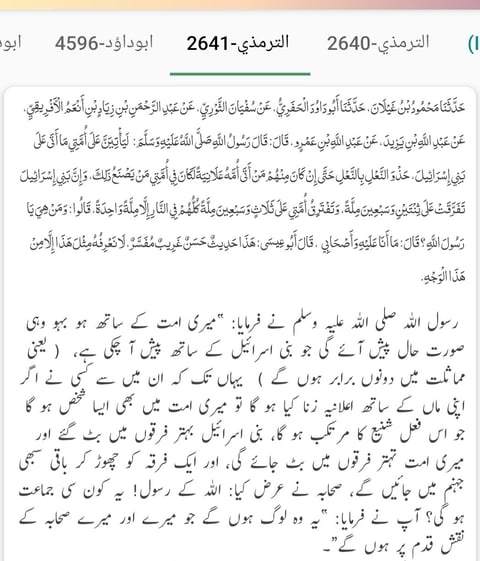 الترمذي-2640 الترمذي-2641 ابوداؤد-4596 ابود
حَدَّثَنَا مَحْمُودُ بْنُ غَيْلَانَ، حَدَّثَنَا أَبُو دَاوُدَ الْحَفَرِيُّ، عَنْ سُفْيَانَ الثَّوْرِيِّ، عَنْ عَبْدِ الرَّحْمَنِ بْنِ زِيَادِ بْنِ أَنْعُمَ الْأَفْرِيقِيِّ،
عَنْ عَبْدِ اللَّهِ بْنِ يَزِيدَ، عَنْ عَبْدِ اللَّهِ بْنِ عَمْرٍو، قَالَ: قَالَ رَسُولُ اللَّهِ صَلَّى اللَّهُ عَلَيْهِ وَسَلَّمَ: لَيَأْتِيَنَّ عَلَى أُمَّتِي مَا أَتَى عَلَى
بَنِي إِسْرَائِيلَ، حَذْوَ النَّعْلِ بِالنَّعْلِ حَتَّى إِنْ كَانَ مِنْهُمْ مَنْ أَتَى أُمَّهُ عَلَانِيَةً لَكَانَ فِي أُمَّتِي مَنْ يَصْنَعُ ذَلِكَ، وَإِنَّ بَنِي إِسْرَائِيلَ
تَفَرَّقَتْ عَلَى ثِنْتَيْنِ وَسَبْعِينَ مِلَّةً، وَتَفْتَرِقُ أُمَّتِي عَلَى ثَلَاثٍ وَسَبْعِينَ مِلَّةً كُلُّهُمْ فِي النَّارِ إِلَّا مِلَّةً وَاحِدَةً، قَالُوا: وَمَنْ هِيَ يَا
رَسُولَ اللَّهِ؟ قَالَ: مَا أَنَا عَلَيْهِ وَأَصْحَابِي ، قَالَ أَبُو عِيسَى: هَذَا حَدِيثٌ حَسَنٌ غَرِيبٌ مُفَسَّرٌ، لَا نَعْرِفُهُ مِثْلَ هَذَا إِلَّا مِنْ
هَذَا الْوَجْهِ.
رسول اللہ صلی اللہ علیہ وسلم نے فرمایا: ”میری امت کے ساتھ ہو بہو وہی
صورت حال پیش آئے گی جو بنی اسرائیل کے ساتھ پیش آ چکی ہے، ( یعنی
مماثلت میں دونوں برابر ہوں گے ) یہاں تک کہ ان میں سے کسی نے اگر
اپنی ماں کے ساتھ اعلانیہ زنا کیا ہو گا تو میری امت میں بھی ایسا شخص ہو گا
جو اس فعل شنیع کا مرتکب ہو گا، بنی اسرائیل بہتر فرقوں میں بٹ گئے اور
میری امت تہتر فرقوں میں بٹ جائے گی، اور ایک فرقہ کو چھوڑ کر باقی سبھی
جہنم میں جائیں گے، صحابہ نے عرض کیا: اللہ کے رسول! یہ کون سی جماعت
ہو گی؟ آپ نے فرمایا: ”یہ وہ لوگ ہوں گے جو میرے اور میرے صحابہ کے
نقش قدم پر ہوں گے“۔